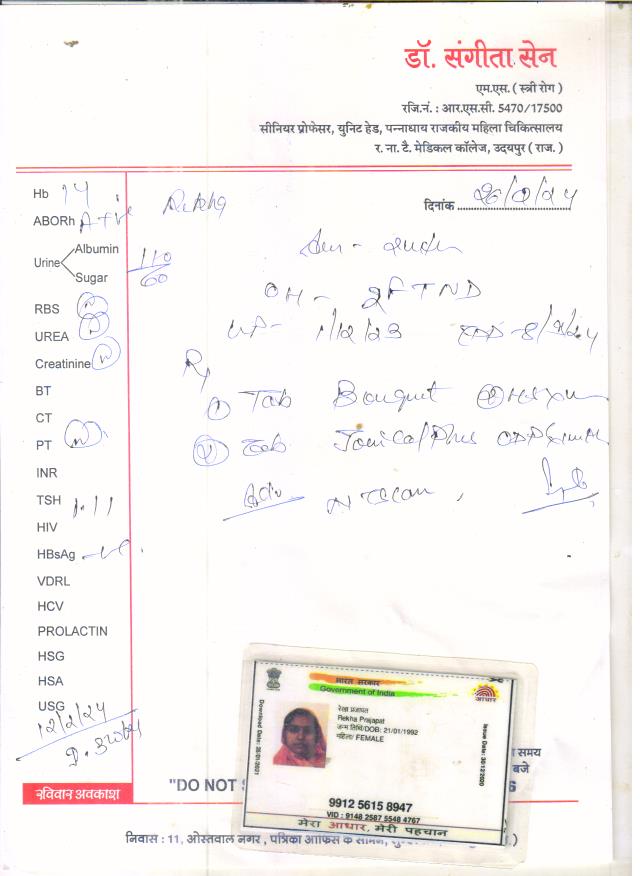 डॉ. संगीता सेन
एम.एस. ( स्त्री रोग )
रजि.नं. : आर.एस.सी. 5470/17500
सीनियर प्रोफेसर, यूनिट हेड, पन्नाधाय राजकीय महिला चिकित्सालय
र. ना. टै. मेडिकल कॉलेज, उदयपुर ( राज. )
Hb 14
Rekha
दिनांक
ABORh A +ve
Urine Albumin
Sugar
110/60
OH - 2FTND
RBS N
UREA N
LMP - 1/12/23 EDD - 8/9/24
Creatinine N
Rx
BT
① Tab
CT
PT N
② Tab
INR
Adv NT Scan
TSH 1.11
HIV
HBsAg -ve
VDRL
HCV
PROLACTIN
HSG
HSA
USG
12/2/24
भारत सरकार
Government of India
आधार
रेखा प्रजापत
Rekha Prajapat
जन्म तिथि/DOB: 21/01/1992
महिला/ FEMALE
Issue Date: 30/12/2020
समय
बजे
रविवार अवकाश
"DO NOT
9912 5615 8947
VID : 9148 2587 5548 4767
मेरा आधार, मेरी पहचान
निवास : 11, ओस्तवाल नगर , पत्रिका ऑफिस के सामने,